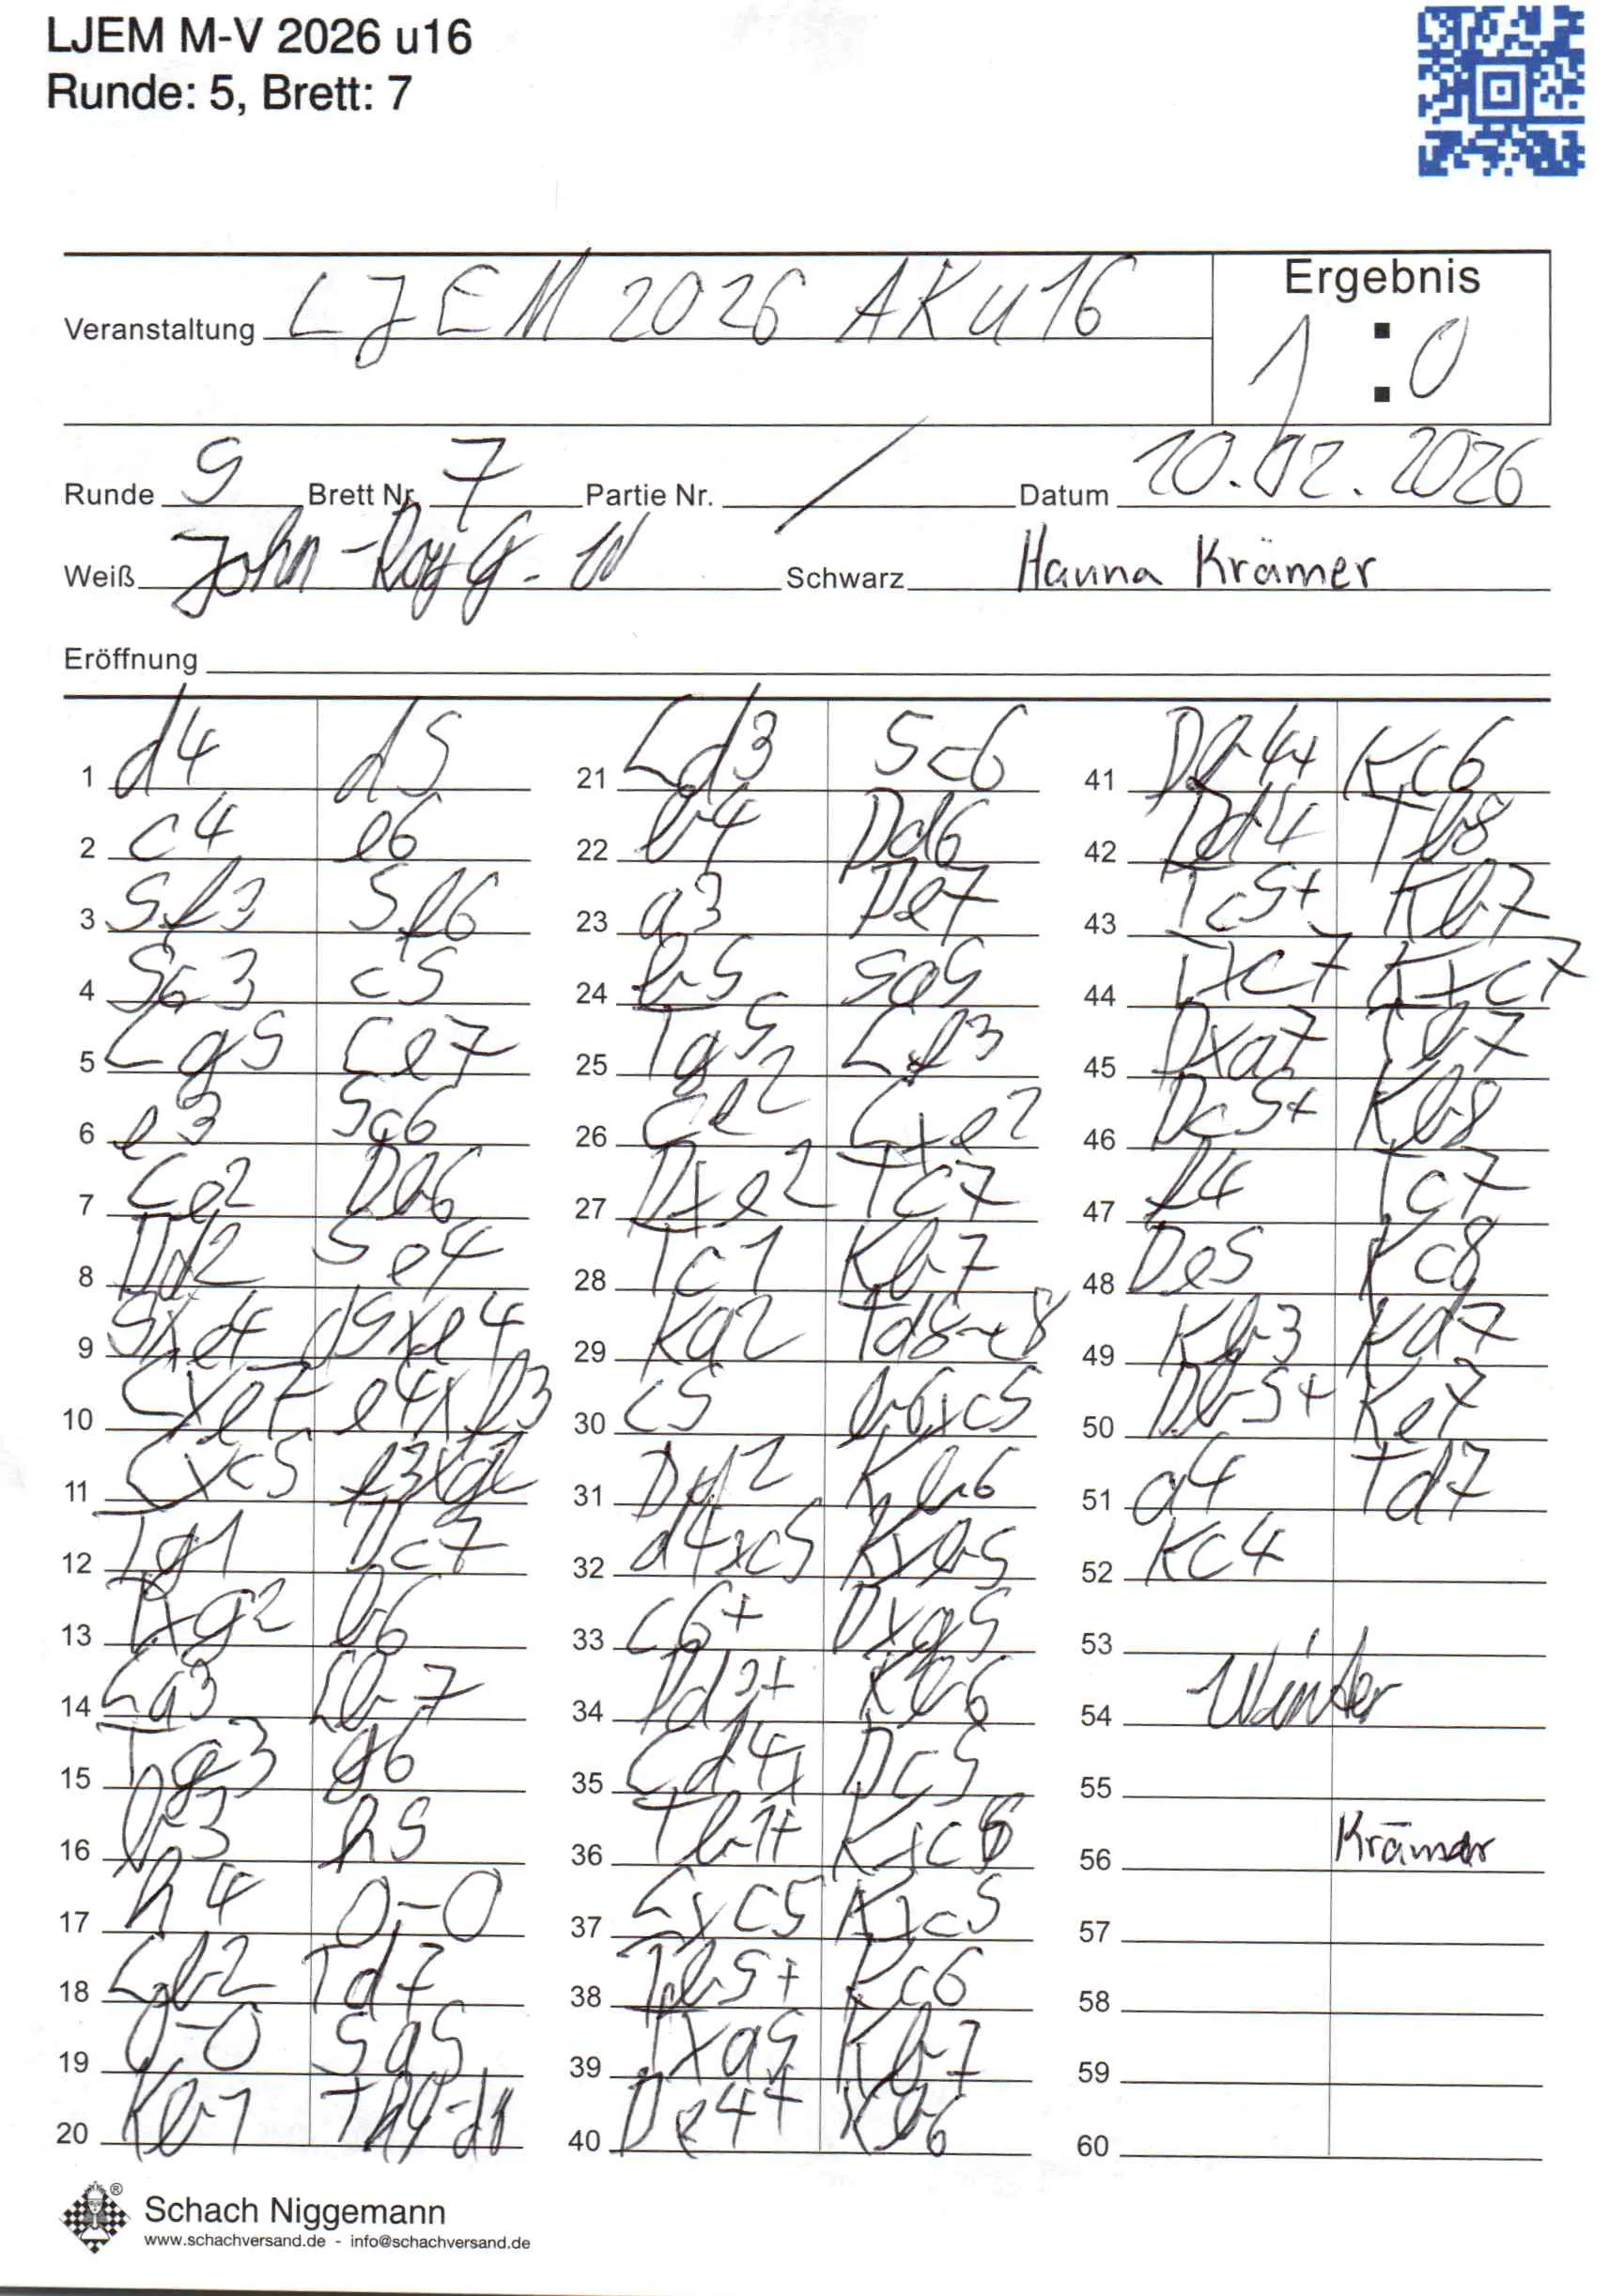 LJEM M-V 2026 u16
Runde: 5, Brett: 7
Veranstaltung LJEM 2026 AKu16
Ergebnis
1 : 0
Runde 5 Brett Nr. 7 Partie Nr. / Datum 10.02.2026
Weiß John-Roy G. W Schwarz Hanna Krämer
Eröffnung
1 d4 d5
2 c4 e6
3 Sf3 Sf6
4 Sc3 c5
5 Lg5 Le7
6 e3 Sc6
7 Le2 Db6
8 Dd2 Se4
9 Sxe4 d5xe4
10 Lxe7 e4xf3
11 Lxc5 f3xg2
12 Tg1 Dc7
13 Txg2 b6
14 La3 Lb7
15 Tg3 g6
16 b3 h5
17 h4 0-0
18 Lb2 Td7
19 0-0 Sa5
20 Kb1 Th8-d8
21 Ld3 Sc6
22 b4 Dd6
23 a3 De7
24 b5 Sa5
25 Tg5 Lf3
26 Le2 Lxe2
27 Dxe2 Tc7
28 Tc1 Kb7
29 Ka2 Td8-c8
30 c5 b6xc5
31 Dd2 Kb6
32 d4xc5 Kxb5
33 c6+ Dxg5
34 Dd3+ Kb6
35 Ld4+ Dc5
36 Tb1+ Kxc6
37 Lxc5 Kxc5
38 Tb5+ Kc6
39 Txa5 Kb7
40 De4+ Kb6
41 Db4+ Kc6
42 Dd4 Tb8
43 Tc5+ Kb7
44 Txc7 Kxc7
45 Dxa7 Tb7
46 Dc5+ Kb8
47 f4 Tc7
48 De5 Kc8
49 Kb3 Kd7
50 Db5+ Ke7
51 a4 Td7
52 Kc4
53
54 Winter
55
56 Krämer
57
58
59
60
Schach Niggemann
www.schachversand.de - info@schachversand.de